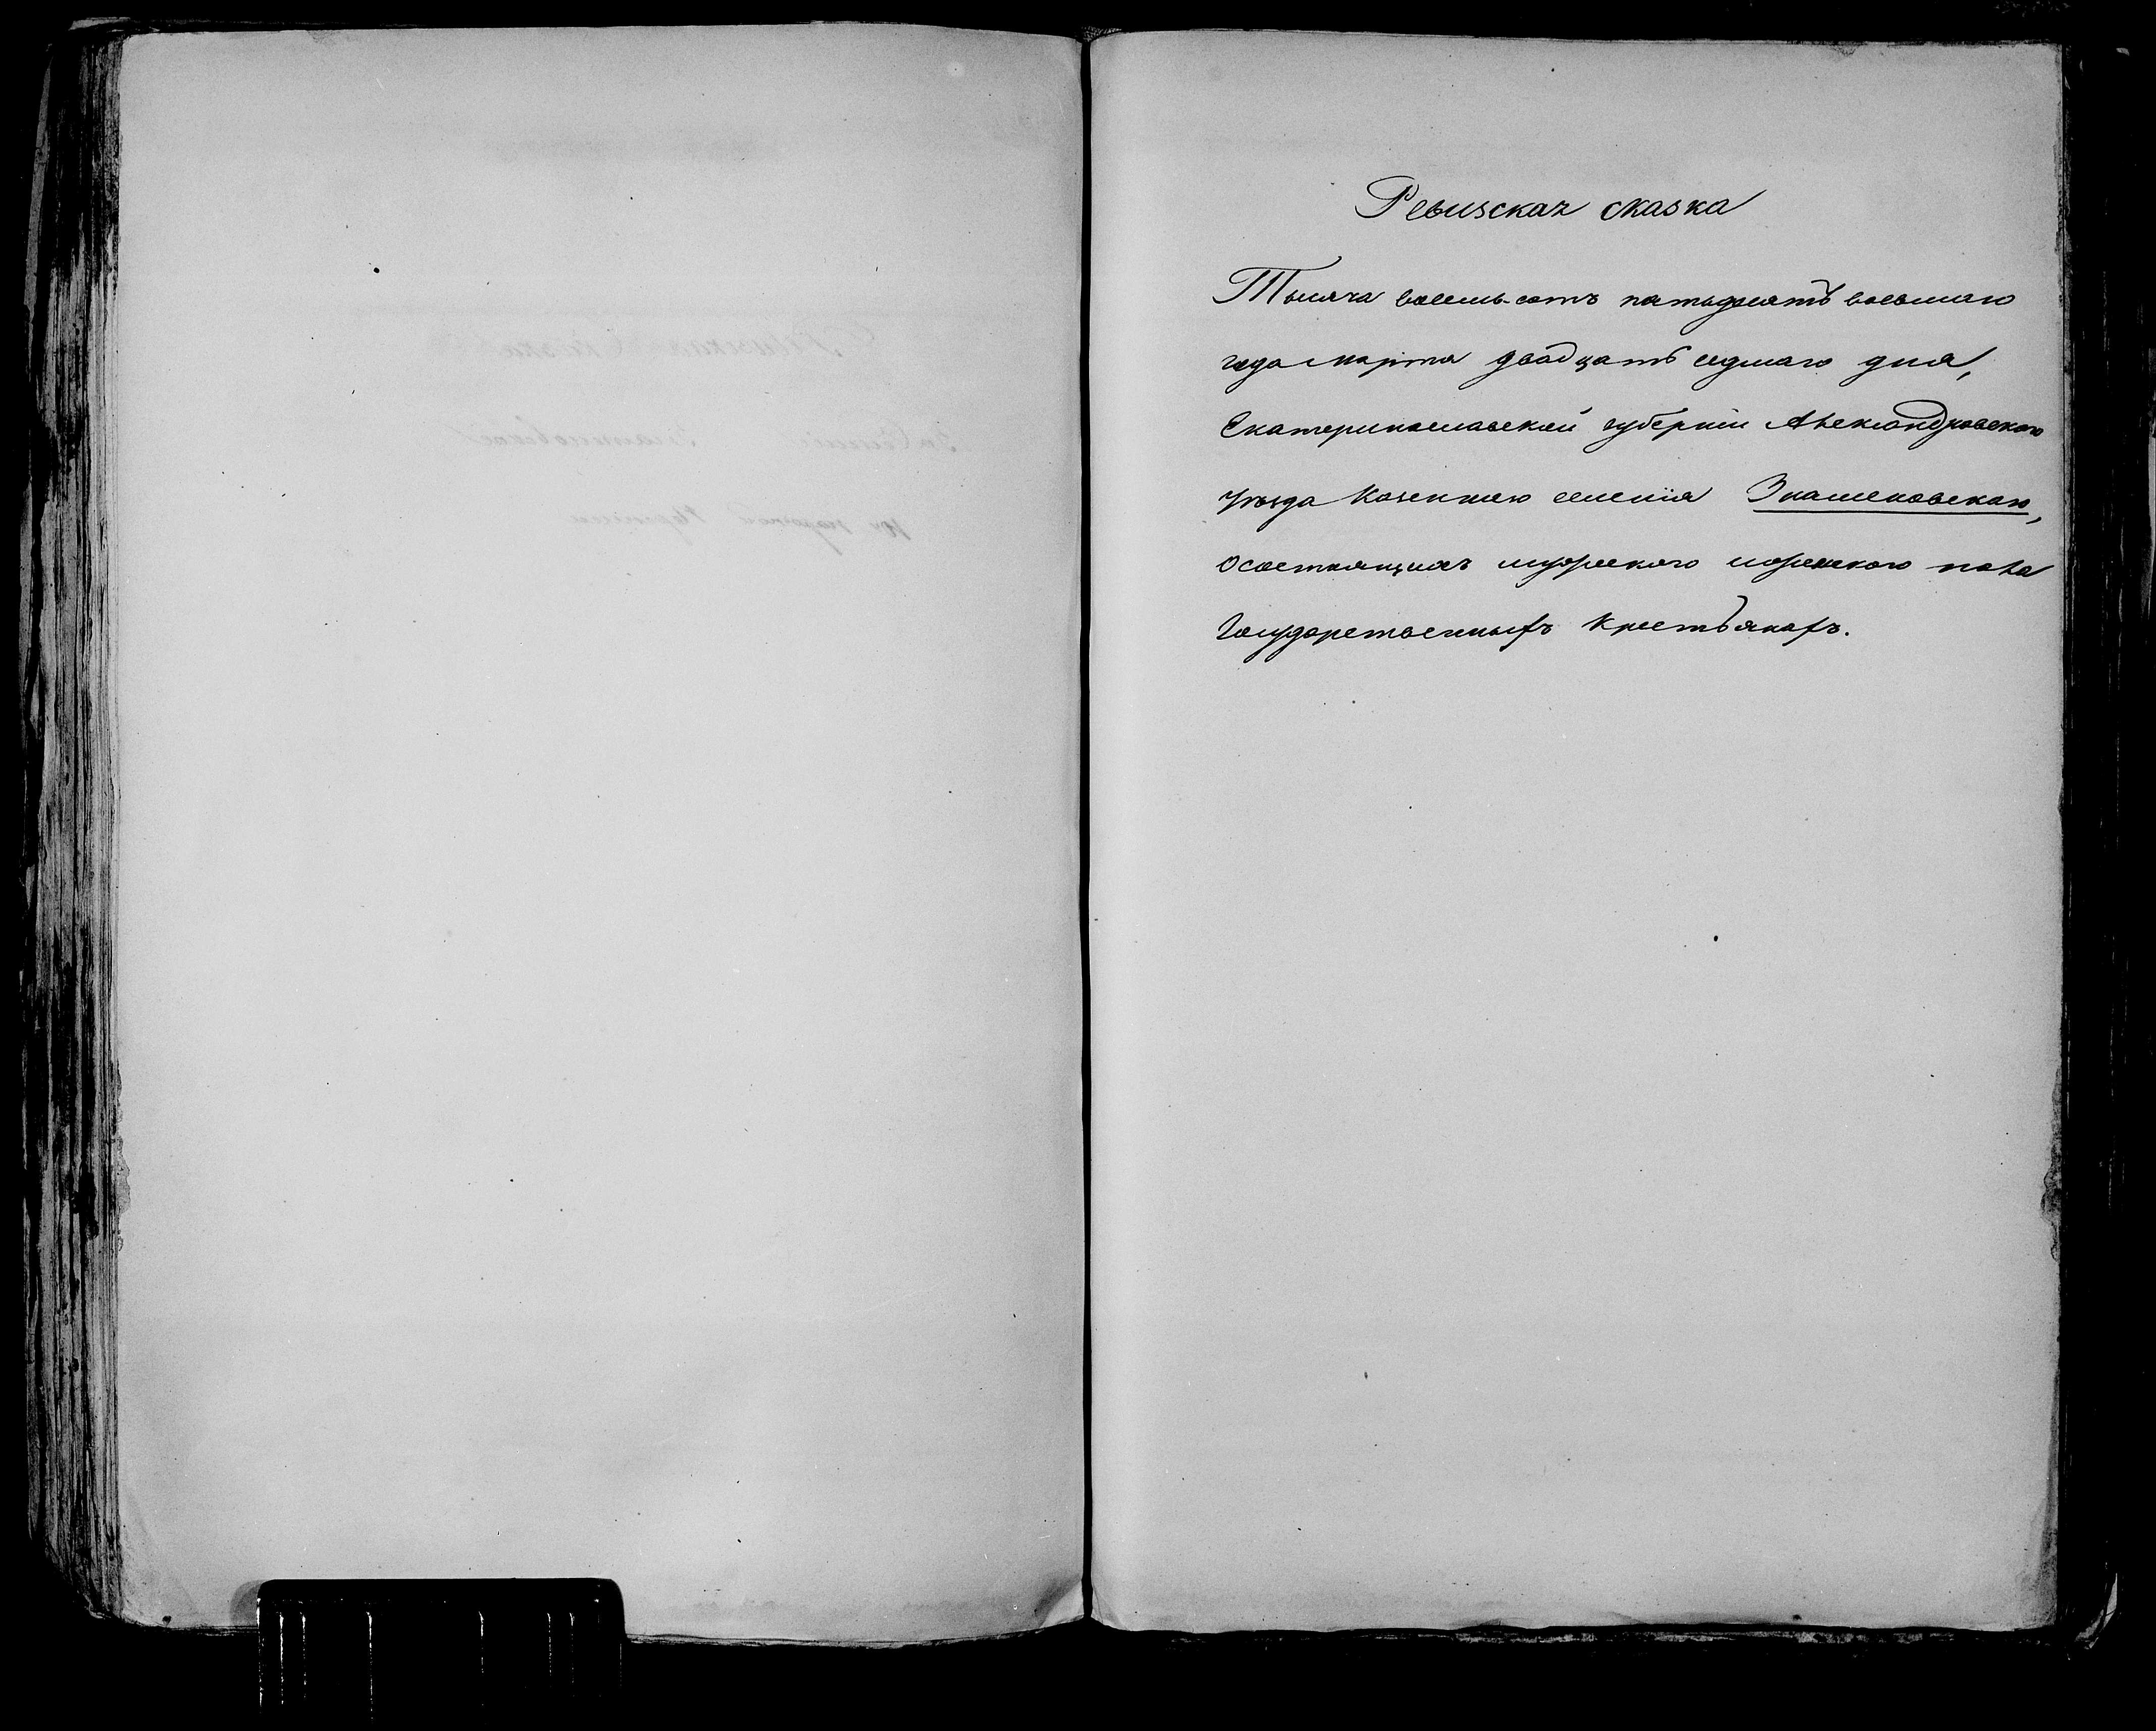 Ревизская сказка
Тысяча восемь-сотъ пятьдесятъ восьмаго
года марта двадцать седмаго дня,
Екатеринославской губерніи Александровскаго
уѣзда Казеннаго селенія Знаменовскаго,
О состоящихъ мужескаго и женскаго пола
Государственныхъ крестьянахъ.